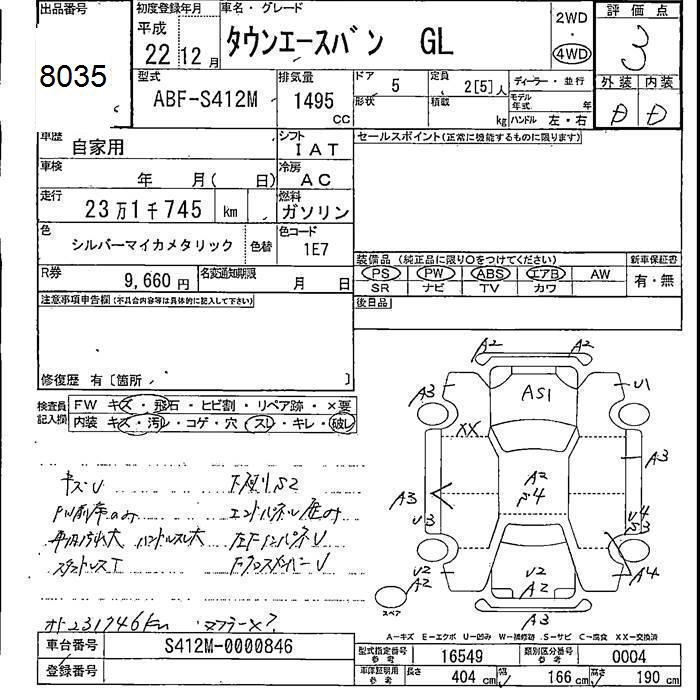 出品番号
8035
初度登録年月
平成
22 12月
車名・グレード
タウンエースバン GL
2WD
・
4WD
評価点
3
外装 内装
D D
型式
ABF-S412M
排気量
1495
cc
ドア 5
定員 2[5]人
形状
積載 kg
ディーラー・並行
モデル年式 年
ハンドル 左・右
車歴 自家用
シフト IAT
セールスポイント(正常に機能するものに限ります)
車検 年 月( 日)
冷房 AC
走行 23万1千745 km
燃料 ガソリン
色 シルバーマイカメタリック 色替
色コード 1E7
装備品 (純正品に限り○をつけてください)
新車保証書
PS PW ABS エアB AW
有・無
SR ナビ TV カワ
R券 9,660円
名変通知期限 月 日
後日品
注意事項申告欄(不具合内容等は具体的に記入して下さい)
修復歴 有〔箇所 〕
検査員記入欄
FW キズ・飛石・ヒビ割・リペア跡・×要
内装 キズ・汚レ・コゲ・穴・スレ・キレ・破レ
キズU 下廻りS2
エンドパネル凹み
車内汚れ大 ハンドルスレ大
スタッドレスT
オド231746km マフラー×?
A2 A2
A3 AS1 U1
XX
A3 A2 A3
S4
U3 U4
S3
U2
A2 A4
U2
A2
スペア
A3
A-キズ E-エクボ U-凹み W-補修跡 S-サビ C-腐食 XX-交換済
車台番号 S412M-0000846
登録番号
型式指定番号 参考 16549
類別区分番号 参考 0004
車庫証明用 参考
長さ 404 cm
幅 166 cm
高さ 190 cm